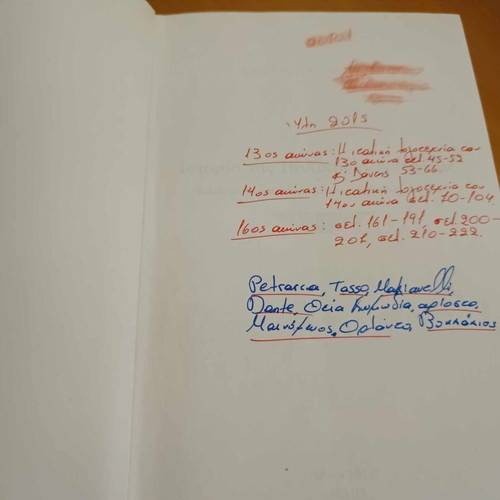 Ύλη 2015
13ος αιώνας: Η ιταλική λογοτεχνία του
13ο αιώνα σελ. 45-52
53-66.
14ος αιώνας: Η ιταλική λογοτεχνία του
14ου αιώνα σελ. 70-104.
16ος αιώνας: σελ. 161-191, σελ. 200-
201, σελ. 210-222.
Petrarca, Tasso, Makiavelli,
Dante, Θεία Κωμωδία, αριόστο
Μαινόμενος, Ορλάνδος, Βοκκάκιος